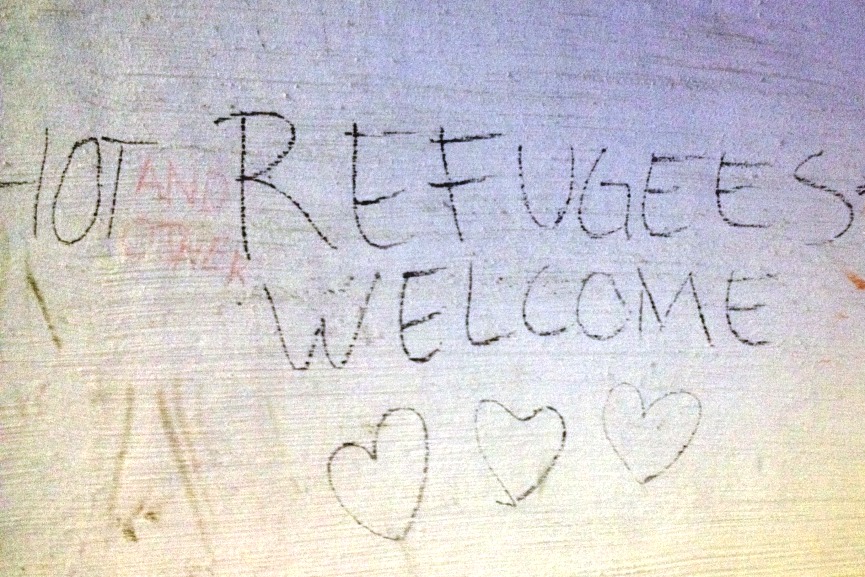 HOT
AND
OTHER
REFUGEES
WELCOME